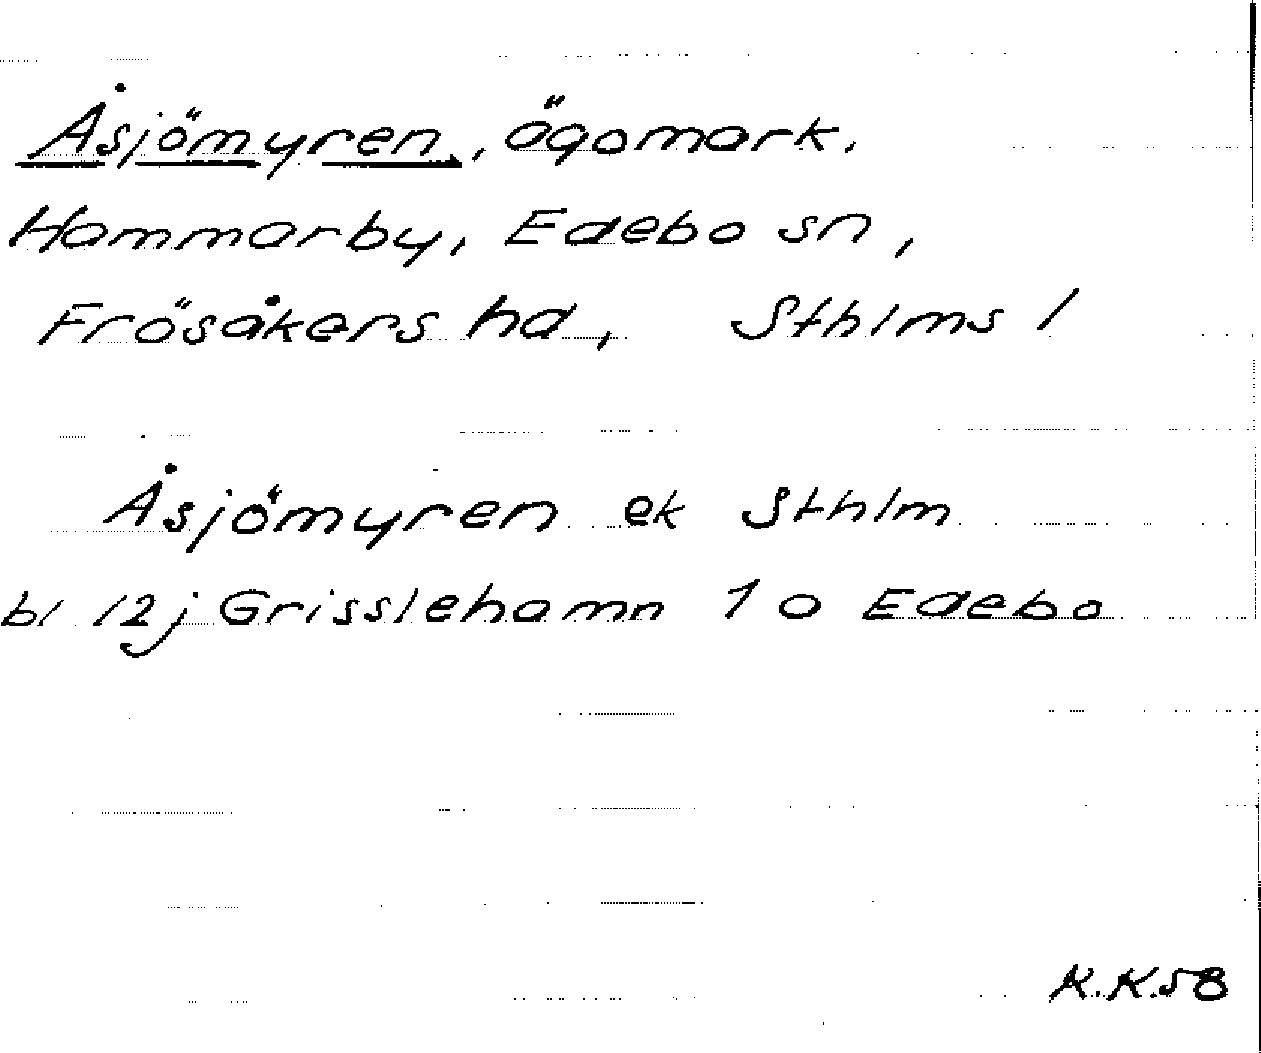 Åsjömyren, ägomark.
Hammarby, Edebo sn,
Frösåkers hd, Sthlms l
Åsjömyren ek Sthlm
bl 12j Grisslehamn 10 Edebo
K.K.58